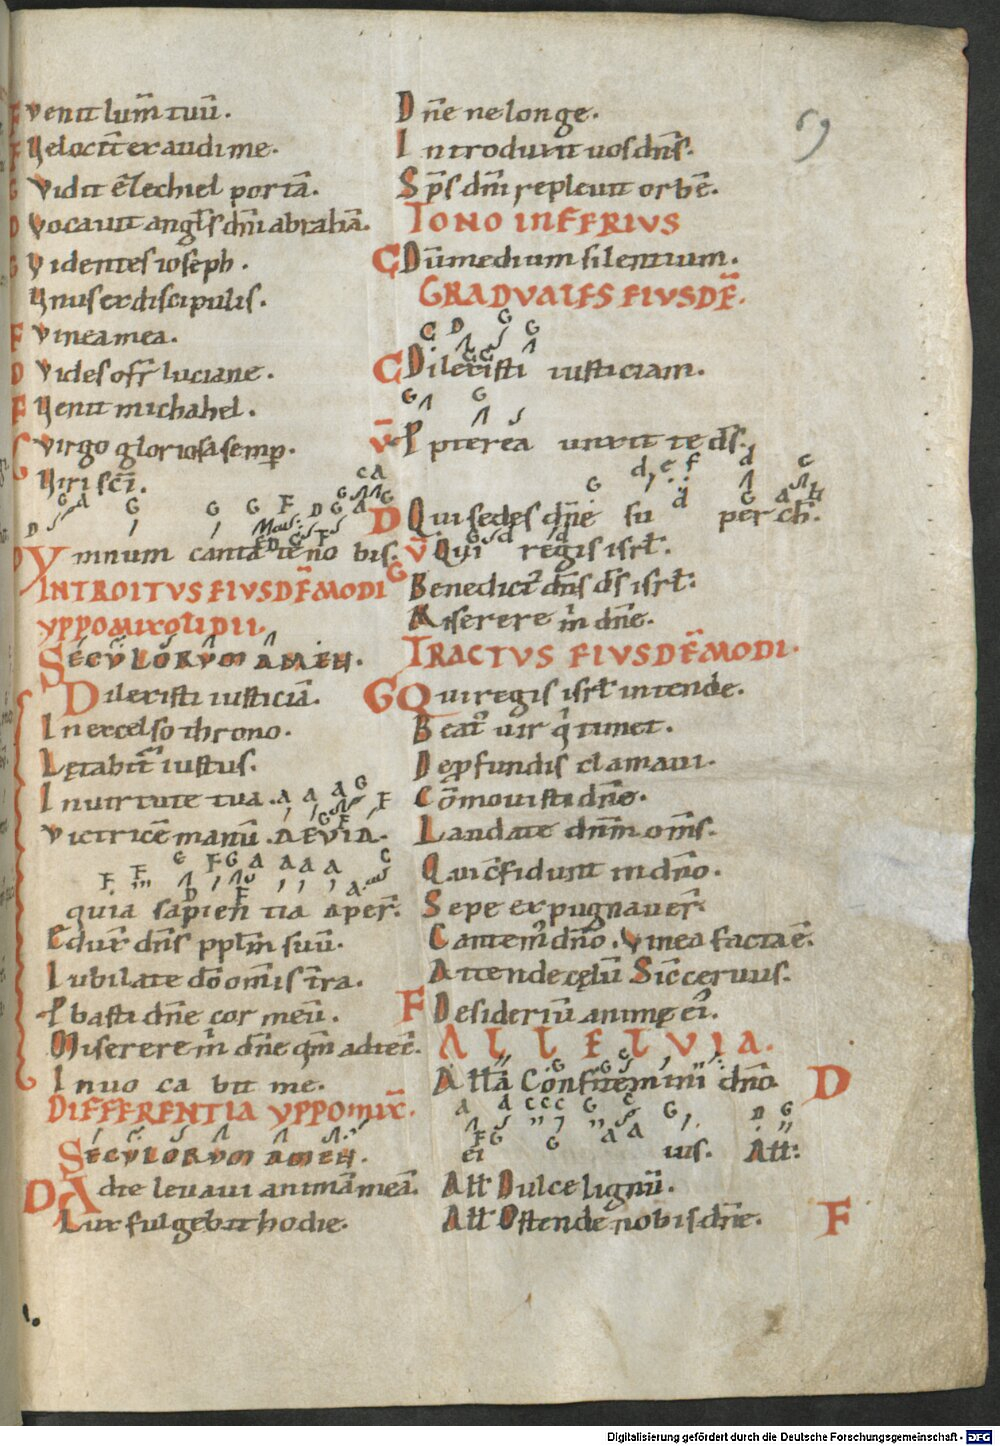 F venit lumē tuū.
F Velocit̄ exaudi me.
G Vidit eZechiel portā.
D Vocauit angl̄s dn̄i abrahā.
G Videntes ioseph.
Vnus ex discipulis.
F Vinea mea.
D Vides ofr̄ luciane.
F Venit michahel.
Virgo gloriosa semp̄.
Viri sc̄i.
Ymnum canta te no bis.
INTROITVS EIVSDĒ MODI
YPPOMIXOLIDII.
SECVLORVM AMEN.
Dilexisti iusticiā.
In excelso throno.
Lętabit̄ iustus.
In uirtute tua.
Victricē manū. AEVIA.
quia sapien tia aper̄.
Edux̄ dn̄s pplm̄ suū.
Iubilate dō om̄is t̄ra.
P̱basti dn̄e cor meū.
Miserere m̄ dn̄e qm̄ ad te c̄.
Inuo ca bit me.
DIFFERENTIA YPPOMIX̄.
SECVLORVM AMEN.
D Ad te leuaui animā meā.
Lux fulgebit hodie.
Dn̄e ne longe.
Introduxit uos dn̄s.
Sp̄s dn̄i repleuit orbē.
TONO INFERIVS
C Dū medium silentium.
GRADVALES EIVSDĒ.
C Dilexisti iusticiam.
V̄ P̱pterea unxit te ds̄.
D Qui sedes dn̄e su per ch̄.
V̄ Qui regis isrl̄.
G Benedict᾿ dn̄s ds̄ isrl̄.
Miserere m̄ dn̄e.
TRACTVS EIVSDĒ MODI.
G Qui regis isrl̄ intende.
Beat᾿ uir q̄ timet.
De p̱fundis clamaui.
Cōmouisti dn̄e.
Laudate dn̄m om̄s.
Qui c̄fidunt in dn̄o.
Sepe expugnauer̄.
Cantem᾿ dn̄o. Vinea facta ē.
Attende cęlū Sic ceruus.
F Desideriū animę ei᾿.
ALLELVIA.
All̄a Confitemini dn̄o D
ei ius. All̄:
All̄ Dulce lignū.
All̄ Ostende nobis dn̄e. F
Digitalisierung gefördert durch die Deutsche Forschungsgemeinschaft - DFG